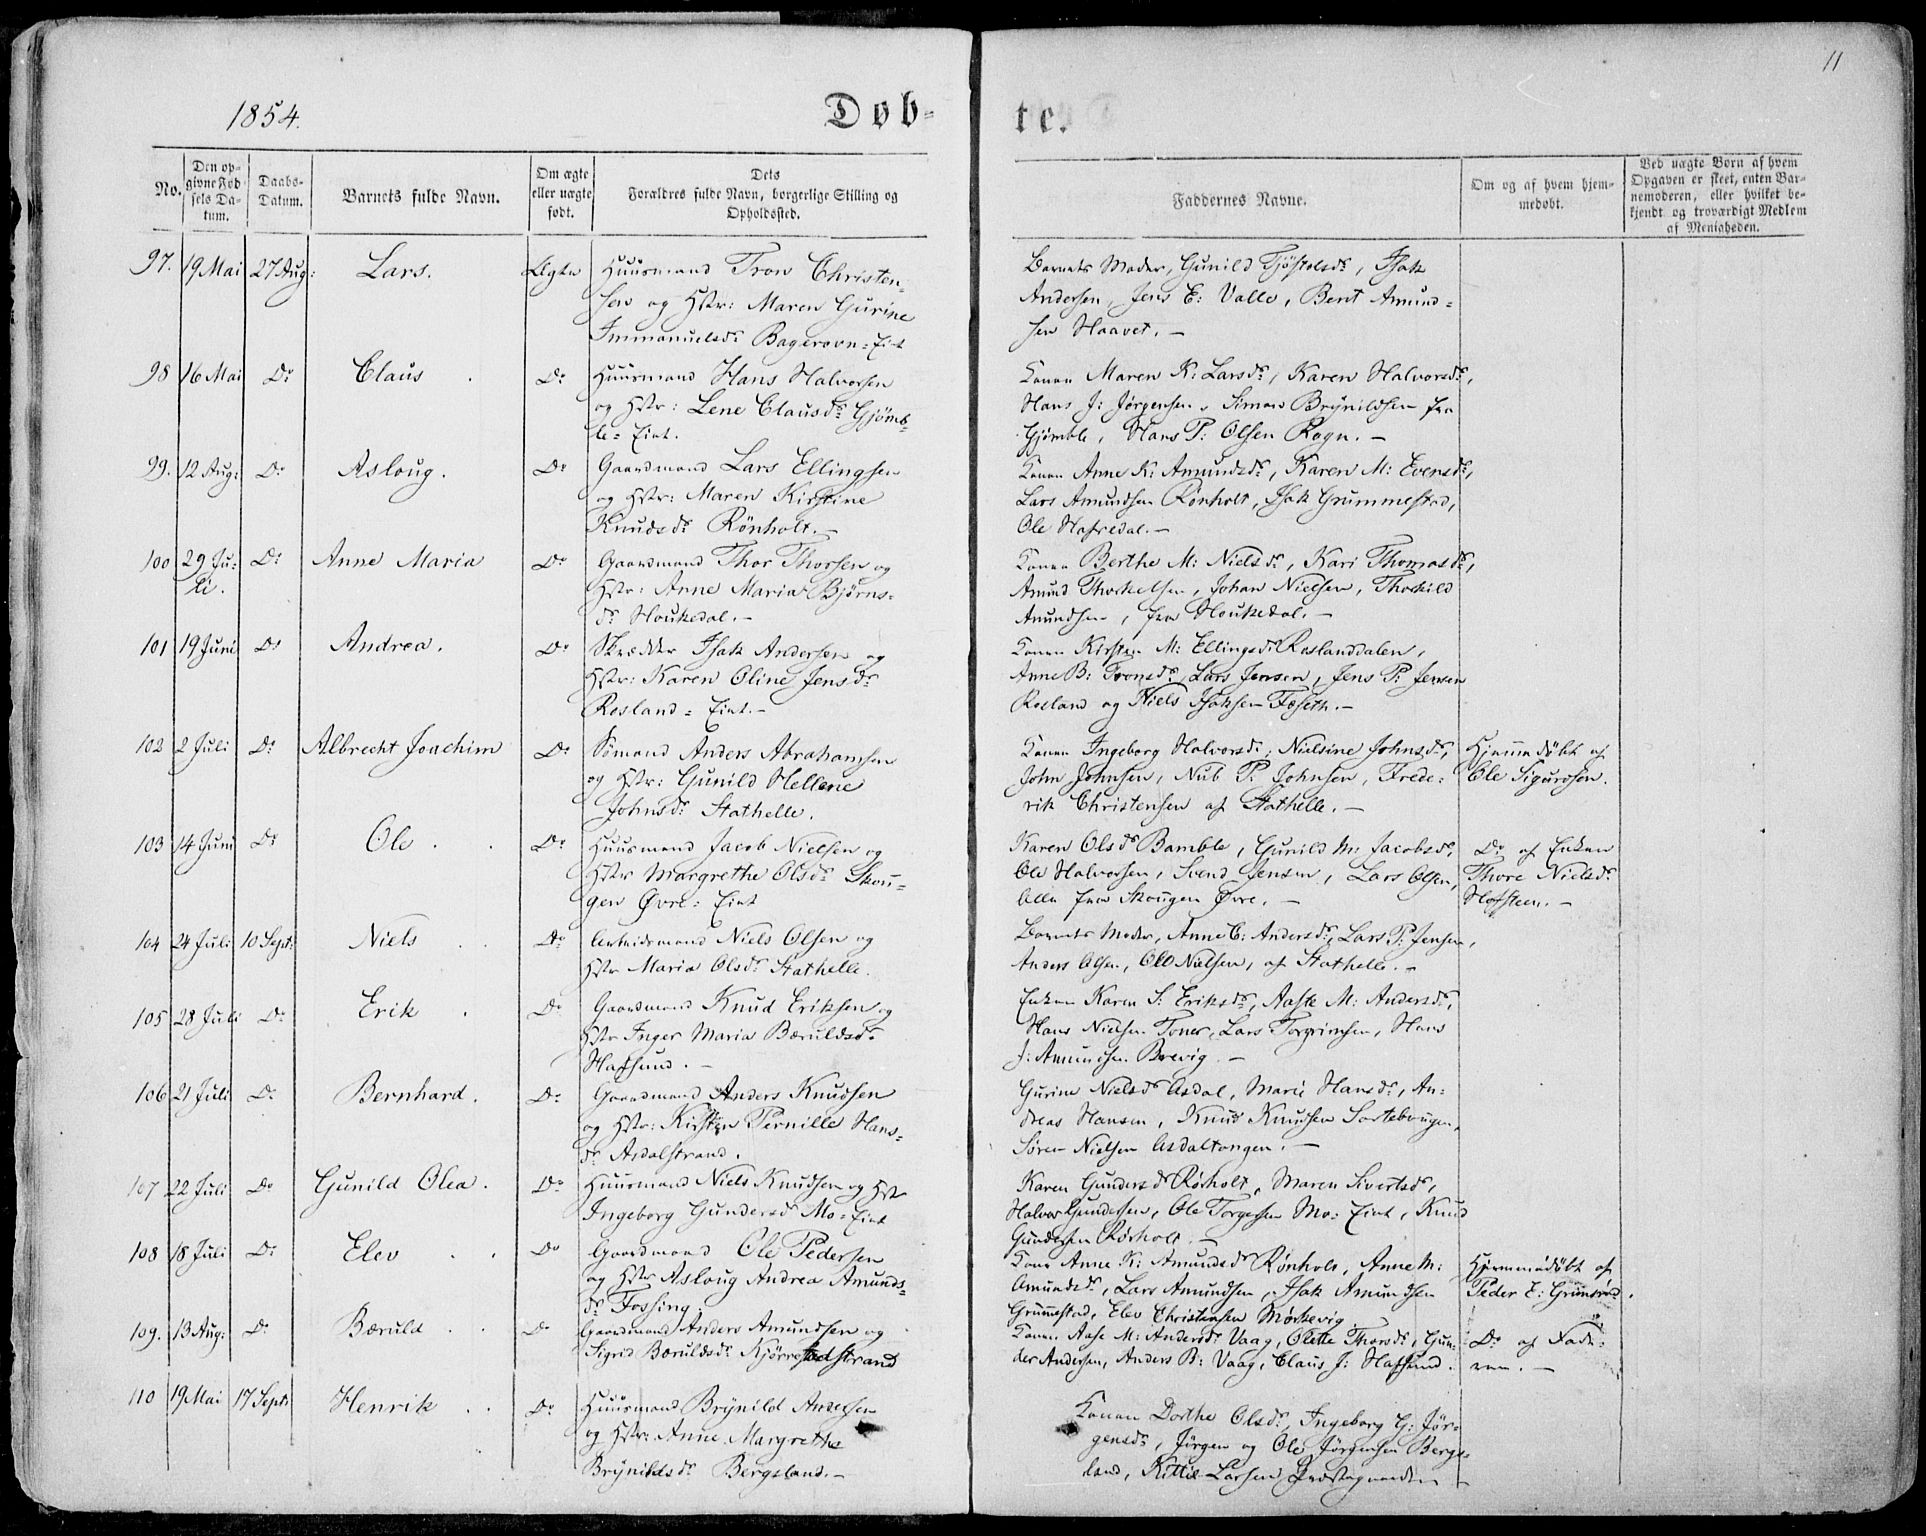 11
1854.
Døb-
te.
No.
Den op-
givne Fød-
sels Da-
tum.
Daabs-
Datum.
Barnets fulde Navn.
Om ægte
eller uægte
født.
Dets
Forældres fulde Navn, borgerlige Stilling og
Opholdssted.
Faddernes Navne.
Om og af hvem hjem-
medøbt.
Ved uægte Børn af hvem
Opgaven er skeet, enten Bar-
nemoderen, eller hvilket be-
kjendt og troværdigt Medlem
af Menigheden.
97. 19 Mai 27 Aug: Lars. Ægte
Huusmand Tron Christen-
sen og Hstr: Maren Gurine
Immanuelsdr Bagerovn=Eiet
Barnets Moder, Gunild Tjøstolsdr, Isak
Andersen, Jens E: Valle, Bent Amund-
sen Haavet. -
98 16 Mai Do Claus Do
Huusmand Hans Halvorsen
og Hstr: Lene Clausdr Gjømb-
le=Eiet.
Konen Maren K: Larsdr, Karen Halvorsdr,
Hans J: Jørgensen, Simon Brynildsen fra
Gjømble, Hans P: Olsen Rogn. -
99. 12 Aug: Do Asloug. Do
Gaardmand Lars Ellingsen
og Hstr: Maren Kirstine
Knudsdr Rønholt. -
Konen Anne K: Amundsdr, Karen M: Evensdr,
Lars Amundsen Rønholt, Isak Grummestad,
Ole Hafredal. -
100 29 Ju- Do Anne Maria Do
li.
Gaardmand Thor Thorsen og
Hstr: Anne Maria Bjørns-
dr Houkedal. -
Konen Berthe M: Nielsdr, Kari Thomasdr,
Amund Thorkelsen, Johan Nielsen, Thorkild
Amundsen, fra Houkedal. -
101 19 Juni Do Andrea. Do
Skrædder Isak Andersen og
Hstr: Karen Oline Jensdr
Rosland=Eiet. -
Konen Kirsten M: Ellingsdr Roslanddalen,
Anne B: Tronsdr, Lars Jensen, Jens P: Jensen
Rosland og Niels Isaksen Foseth. -
102 2 Juli Do Albrecht Joachim Do
Sømand Anders Abrahamsen
og Hstr: Gunild Hellene
Johnsdr Stathelle.
Konen Ingeborg Halvorsdr, Nielsine Johnsdr,
John Johnsen, Nub P: Johnsen, Frede-
rik Christensen af Stathelle. -
Hjemmedøbt af
Ole Sigurdsen.
103 14 Juni Do Ole Do
Huusmand Jacob Nielsen og
Hstr Margrethe Olsdr Skou-
gen Øvre=Eiet
Karen Olsdr Bamble, Gunild M: Jacobsdr,
Ole Halvorsen, Svend Jensen, Lars Olsen,
alle fra Skougen Øvre. -
Do af Enken
Thore Nielsdr
Hofsteen. -
104 24 Juli 10 Sept: Niels Do
Arbeidsmand Niels Olsen og
Hstr Maria Olsdr Stathelle.
Barnets Moder, Anne C: Andersdr, Lars P: Jensen,
Anders Olsen, Ole Nielsen, af Stathelle. -
105 28 Juli Do Erik Do
Gaardmand Knud Eriksen og
Hstr Inger Maria Bæruldsdr
Hafsund. -
Enken Karen S: Eriksdr, Aaste M: Andersdr,
Hans Nielsen Toner, Lars Torgrimsen, Hans
J: Amundsen Brevig. -
106 21 Juli Do Bernhard. Do
Gaardmand Anders Knudsen
og Hstr: Kirsten Pernille Hans-
dr Asdalstrand.
Gurine Nielsdr Asdal, Marie Hansdr, An-
dreas Hansen, Knud Knudsen Sortebougen,
Søren Nielsen Asdaltangen. -
107 22 Juli Do Gunild Olea. Do
Huusmand Niels Knudsen og Hstr
Ingeborg Gundersdr Mo=Eiet
Karen Gundersdr Rørholt, Maren Sivertsdr,
Halvor Gundersen, Ole Torgersen Mo=Eiet, Knud
Gundersen Rørholt. -
108 18 Juli Do Elev Do
Gaardmand Ole Pedersen
og Hstr Asloug Andrea Amunds-
dr Fossing.
Kone Anne K: Amundsdr Rønholt, Anne M:
Amundsdr, Lars Amundsen, Isak Amundsen
Grummestad, Elev Christensen Mørkevig.
Hjemmedøbt af
Peder E: Grimsrød.
109. 13 Aug: Do Bæruld Do
Gaardmand Anders Amundsen og
Sigrid Bæruldsdr Kjørrestadstrand
Konen Aase M: Andersdr Vaag, Olette Thorsdr, Gun-
der Andersen, Anders B: Vaag, Claus J: Hafsund.
Do af Fade-
ren. -
110 19 Mai 17 Sept: Henrik Do
Huusmand Brynild Andersen
og Hstr: Anne Margrethe
Brynildsdr Bergsland. -
Konen Dorthe Olsdr, Ingeborg G: Jør-
gensdr, Jørgen og Ole Jørgensen Bergs-
land, Kittil Larsen Præstegaarden -